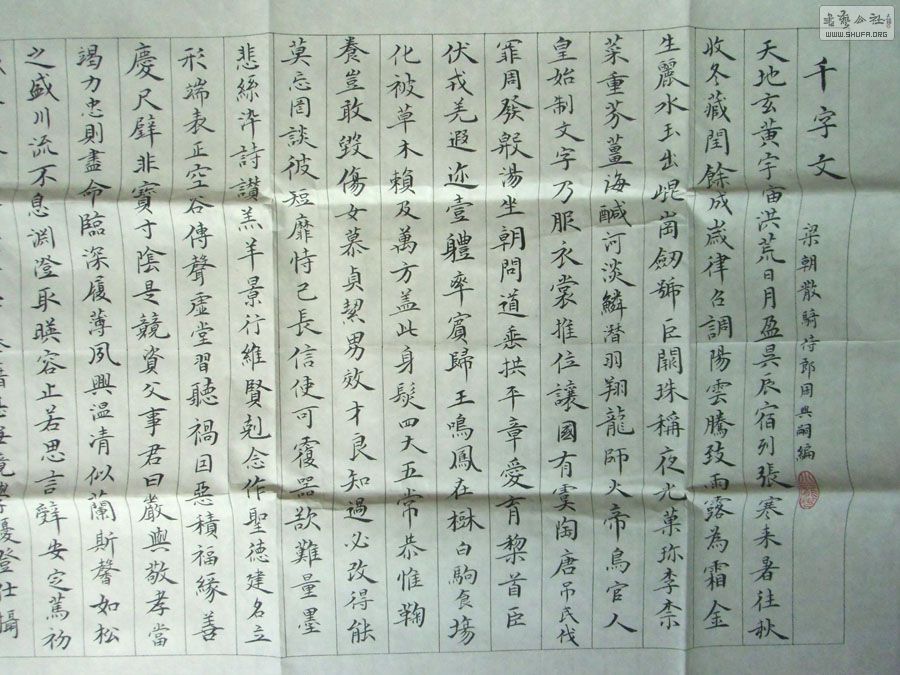 千字文
梁朝散騎侍郎周興嗣編
天地玄黃宇宙洪荒日月盈昃辰宿列張寒来暑往秋
收冬藏閏餘成歲律召調陽雲騰致雨露為霜金
生麗水玉出崐崗劒號巨闕珠稱夜光菓珎李柰
菜重芥薑海鹹河淡鱗潛羽翔龍師火帝鳥官人
皇始制文字乃服衣裳推位讓國有虞陶唐吊民伐
罪周發殷湯坐朝問道垂拱平章愛育黎首臣
伏戎羌遐迩壹體率賓歸王鳴鳳在樹白駒食場
化被草木賴及萬方盖此身髮四大五常恭惟鞠
養豈敢毀傷女慕貞絜男效才良知過必改得能
莫忘罔談彼短靡恃己長信使可覆器欲難量墨
悲絲染詩讃羔羊景行維賢剋念作聖德建名立
形端表正空谷傳聲虛堂習聽禍因惡積福緣善
慶尺璧非寶寸陰是競資父事君曰嚴與敬孝當
竭力忠則盡命臨深履薄夙興温清似蘭斯馨如松
之盛川流不息淵澄取暎容止若思言辭安定篤初
竟學優登仕攝
書藝公社
WWW.SHUFA.ORG